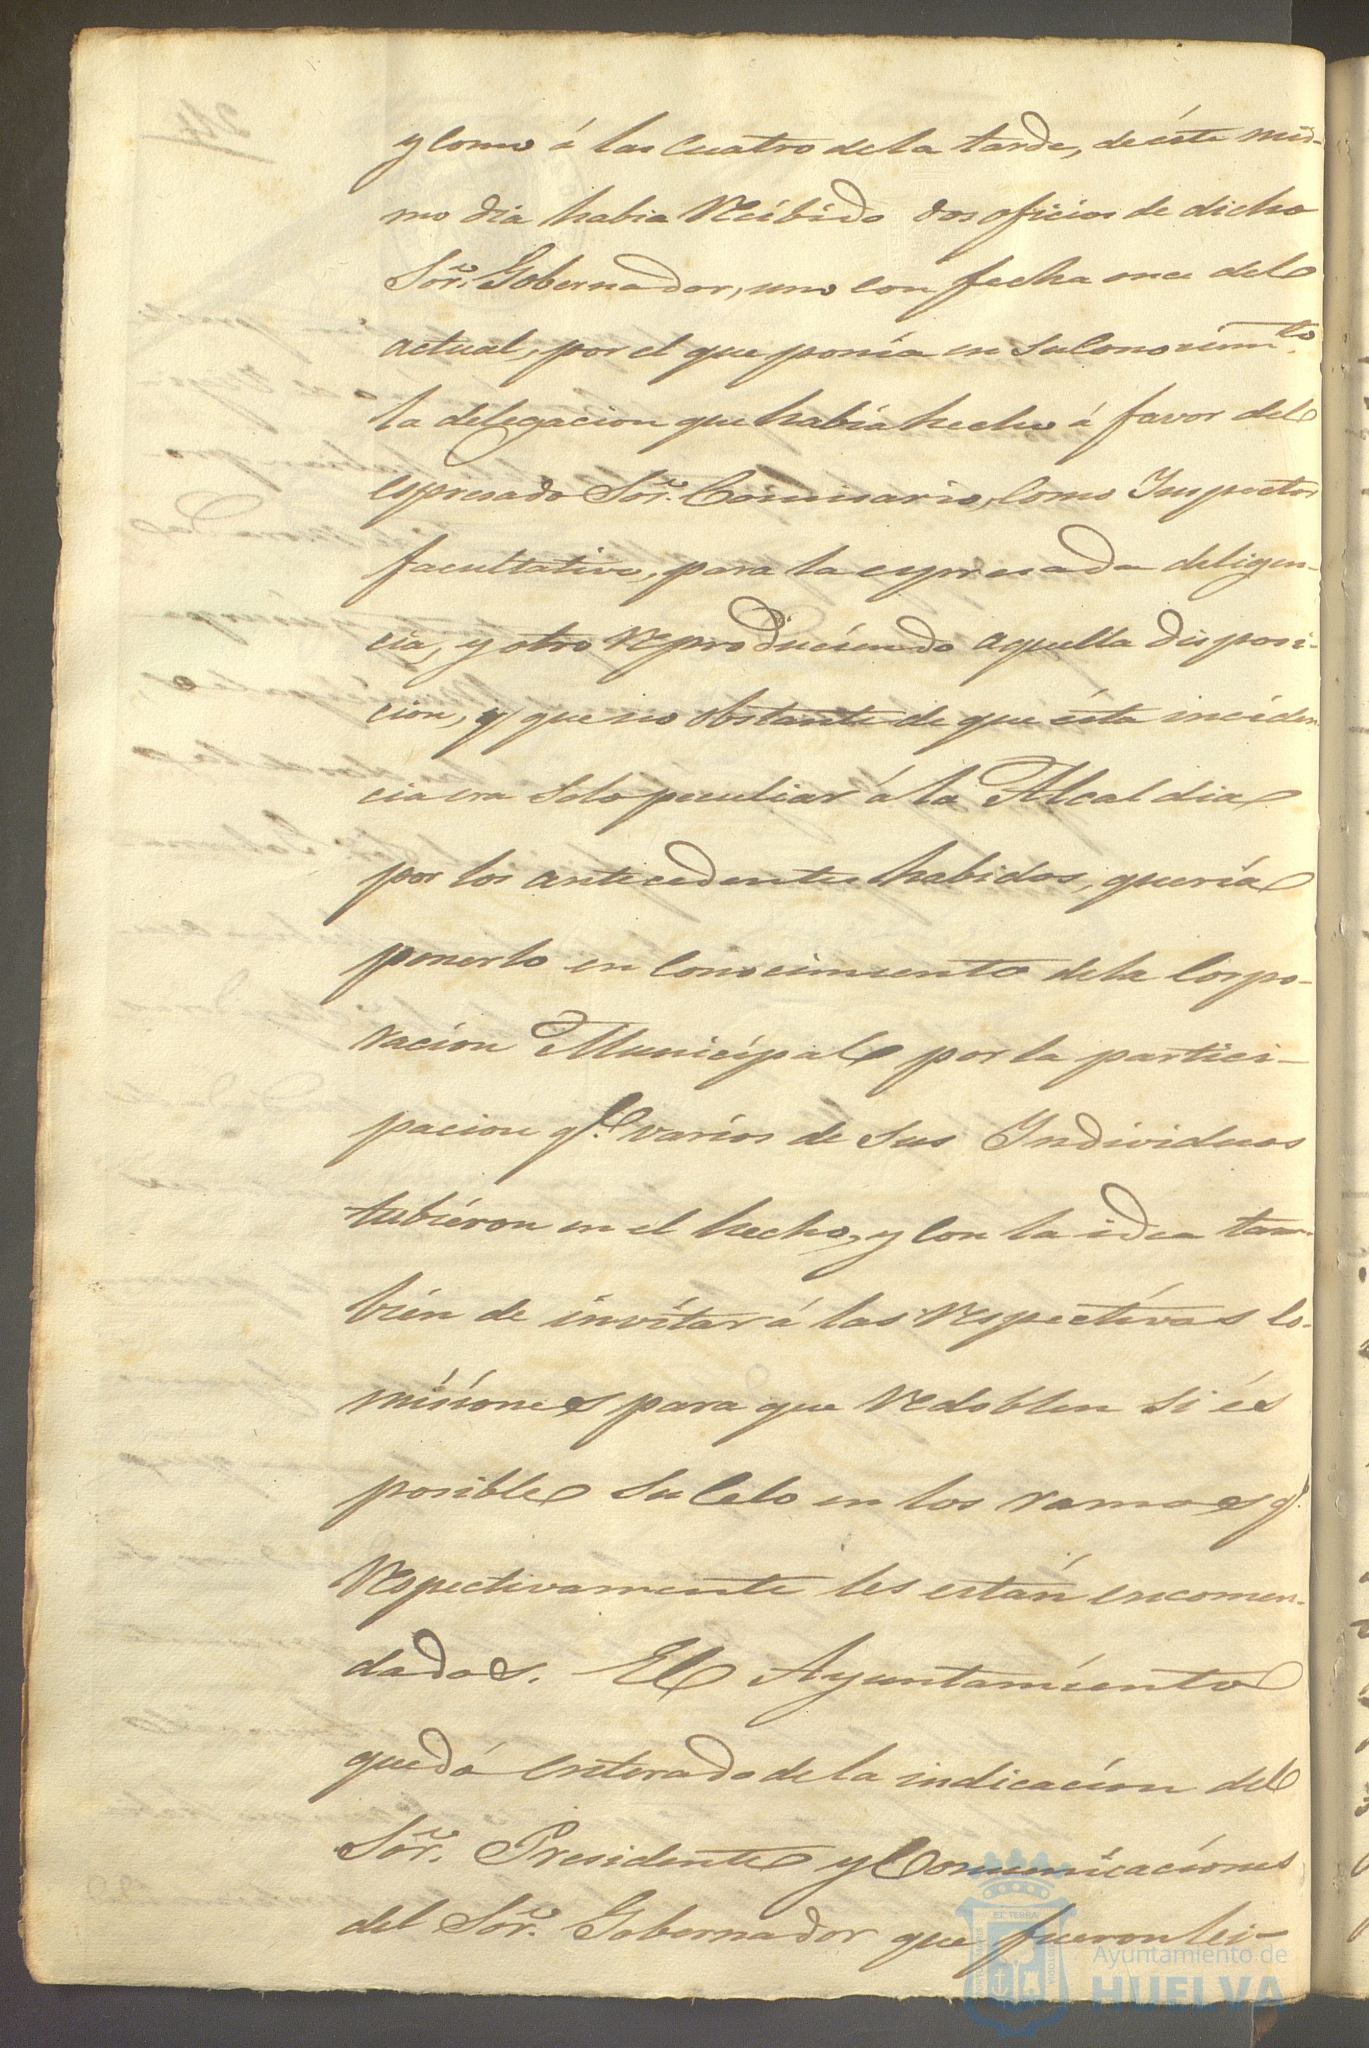 y como á las cuatro de la tarde, de éste mis-
mo dia habia recibido dos oficios de dicho
Sor. Gobernador, uno con fecha once del
actual, por el que ponía en su conocimto.
la delegacion que había hecho á favor del
espresado Sor. Comisario, como Inspector
facultativo, para la expresada deligen-
cia, y otro reproduciendo aquella disposi-
cion, y que no obstante de que ésta inciden
cia era solo peculiar á la Alcaldia
por los antecedentes habidos, quería
ponerlo en conocimiento de la Corpo-
racion Municipal por la partici-
pacion q.e varios de sus Individuos
tubieron en el hecho, y con la idea tam-
bien de invitar á las respectivas Co-
misiones para que redoblen si és
posible su celo en los ramos q.e
respectivamente les están encomen-
dados. El Ayuntamiento
quedó enterado de la indicacion del
Sor. Presidente y comunicaciones
del Sor. Gobernador que fueron lei-
Ayuntamiento de
HUELVA